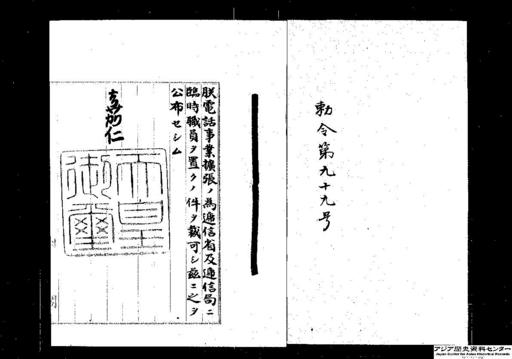 勅令第九十九号
朕電話事業擴張ノ為逓信省及逓信局ニ
臨時職員ヲ置クノ件ヲ裁可シ茲ニ之ヲ
公布セシム
嘉仁
天皇
御璽
アジア歴史資料センター
Japan Center for Asian Historical Records